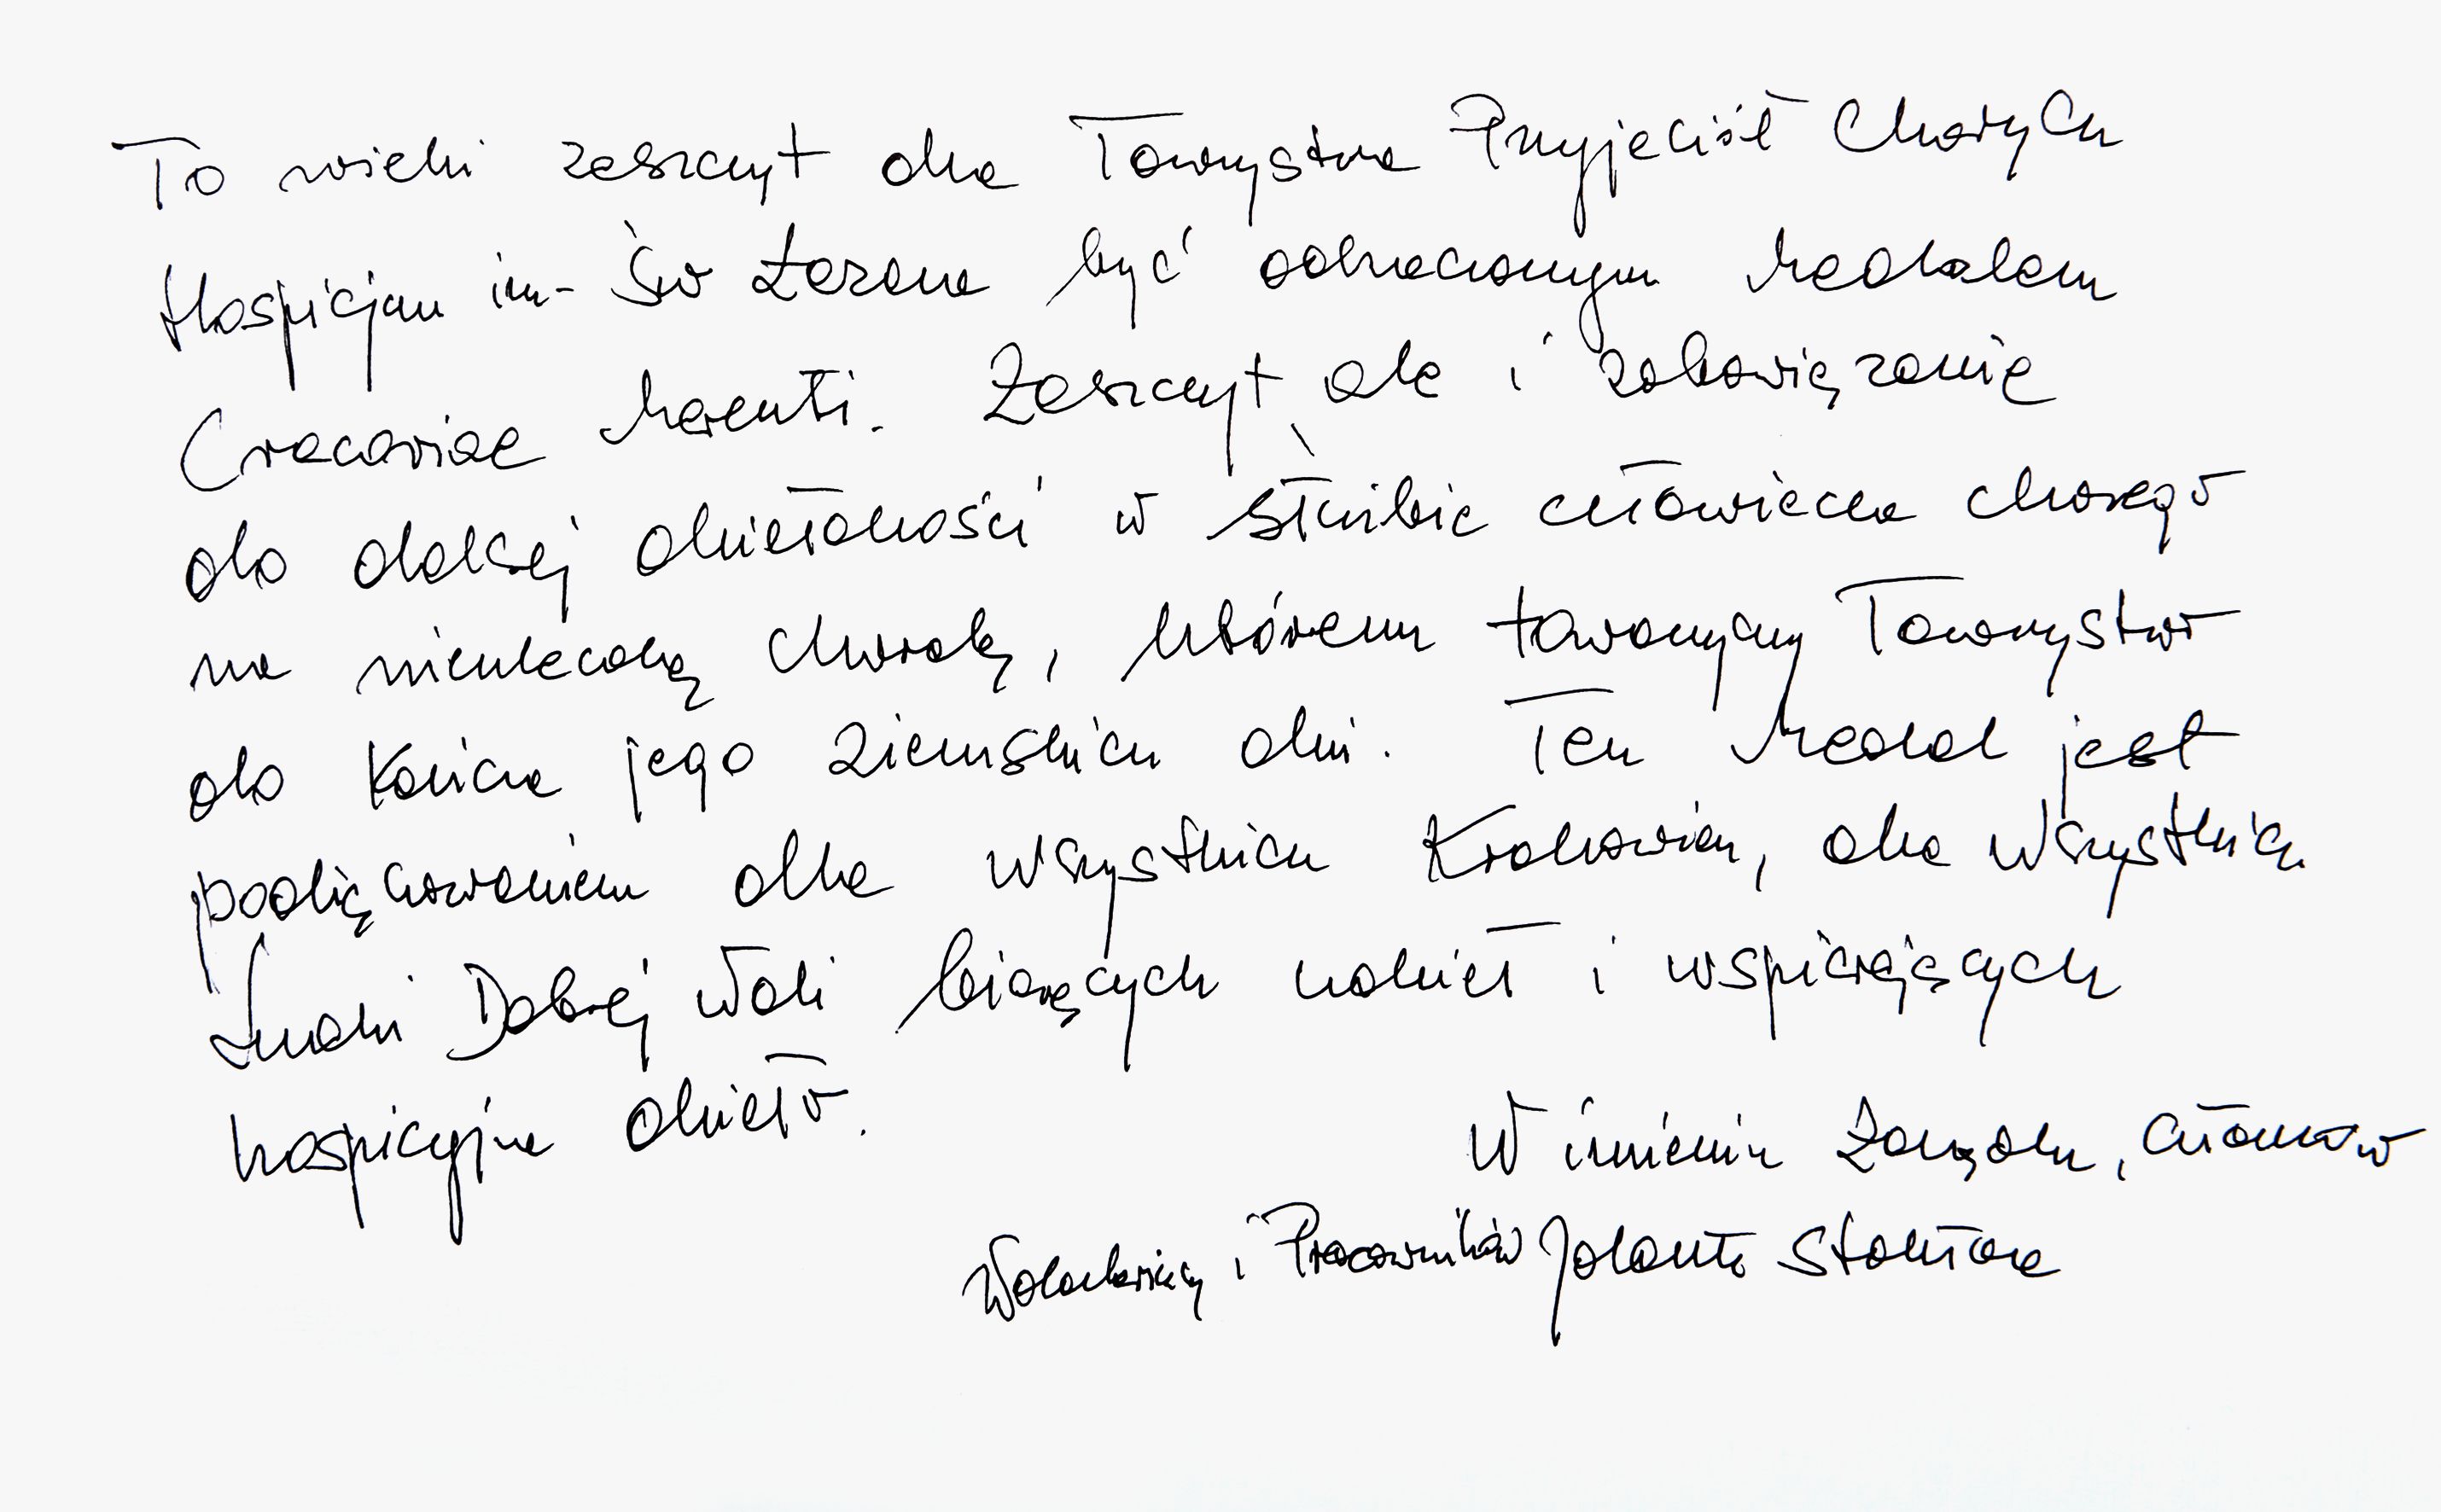 To wielki zaszczyt dla Towarzystwa Przyjaciół Chorych
Hospicjum im. Św Łazarza być odznaczonym Medalem
Cracoviae Merenti. Zaszczyt ale i zobowiązanie
do dalszej działalności w służbie człowieka chorego
na nieuleczalną chorobę, któremu towarzyszy Towarzystwo
do końca jego ziemskich dni. Ten Medal jest
podziękowaniem dla wszystkich Krakowian, dla wszystkich
Ludzi Dobrej Woli biorących udział i wspierających
hospicyjne dzieło.
W imieniu Zarządu, Członków
Wolontariuszy i Pracowników Jolanta Stokłosa